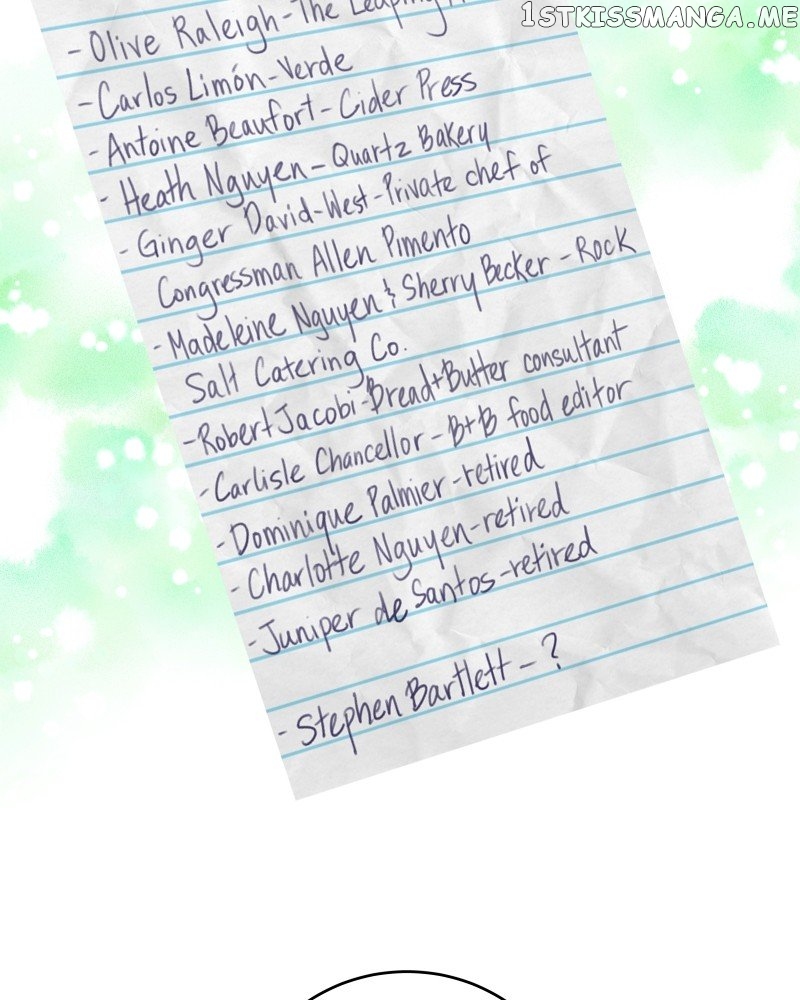 1STKISSMANGA.ME
- Olive Raleigh - The Leaping
- Carlos Limón - Verde
- Antoine Beaufort - Cider Press
- Heath Nguyen - Quartz Bakery
- Ginger David-West - Private chef of
Congressman Allen Pimento
- Madeleine Nguyen & Sherry Becker - Rock
Salt Catering Co.
- Robert Jacobi - Bread+Butter consultant
- Carlisle Chancellor - B+B food editor
- Dominique Palmier - retired
- Charlotte Nguyen - retired
- Juniper de Santos - retired
- Stephen Bartlett - ?